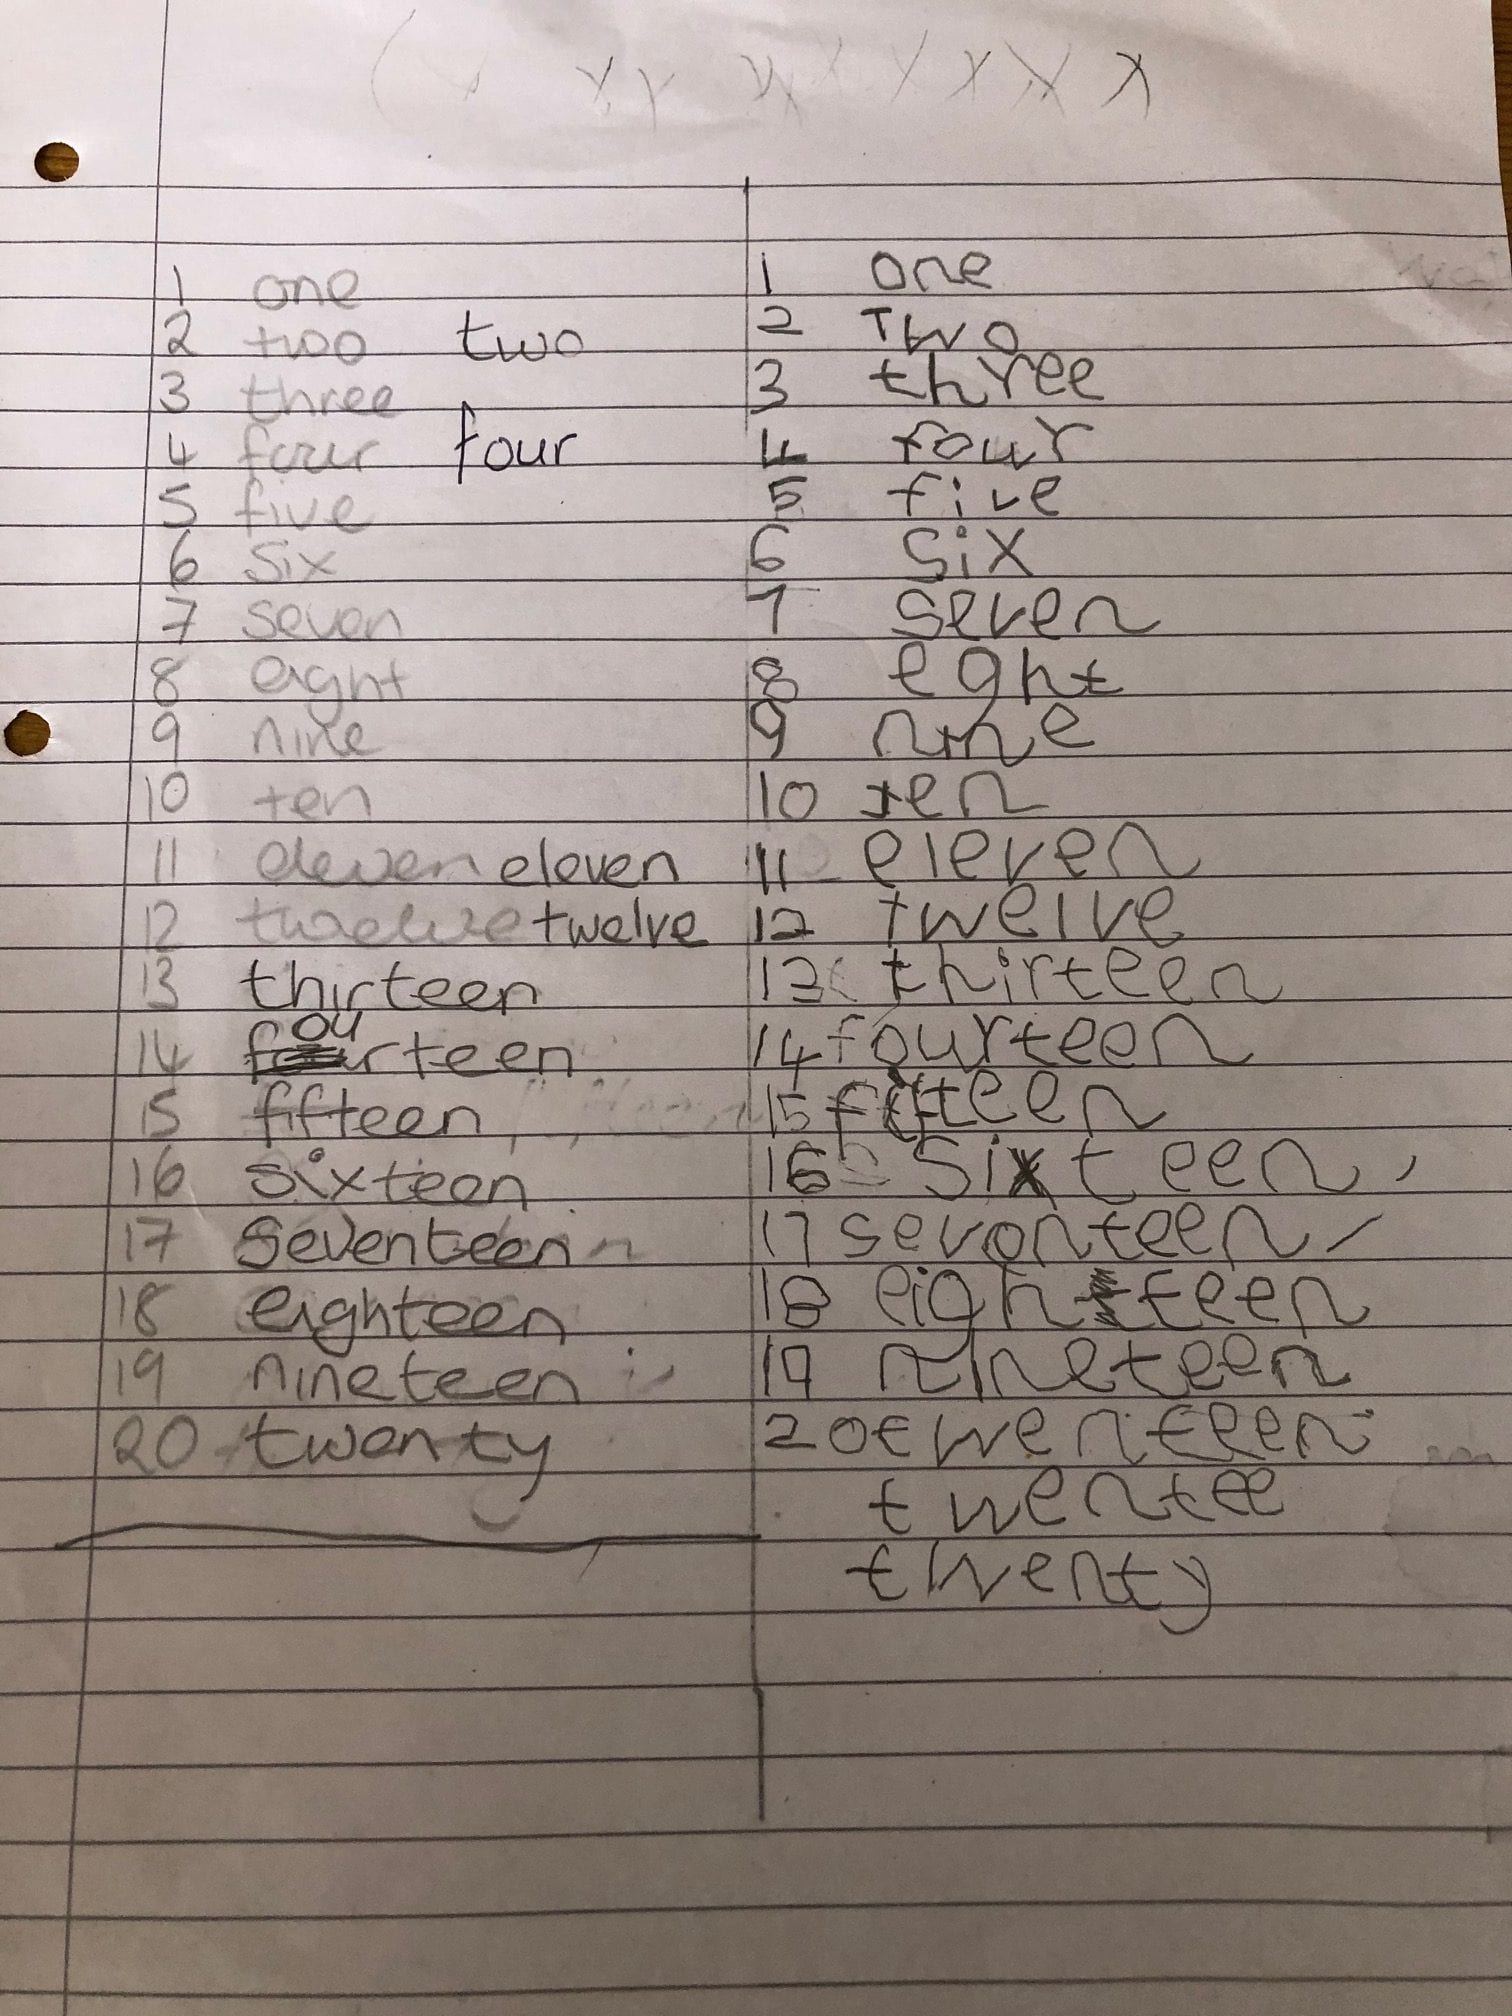 x x x x x x x x x
1 one
2 two two
3 three
4 four four
5 five
6 six
7 seven
8 eight
9 nine
10 ten
11 eleven eleven
12 twelve
13 thirteen
14 fourteen
15 fifteen
16 sixteen
17 seventeen
18 eighteen
19 nineteen
20 twenty
1 one
2 Two
3 three
4 four
5 five
6 six
7 seven
8 eght
9 nine
10 ten
11 eleven
12 twelve
13 thirteen
14 fourteen
15 fifteen
16 sixteen
17 sevonteen
18 eighteen
19 nineteen
20 twenteen
twentee
twenty